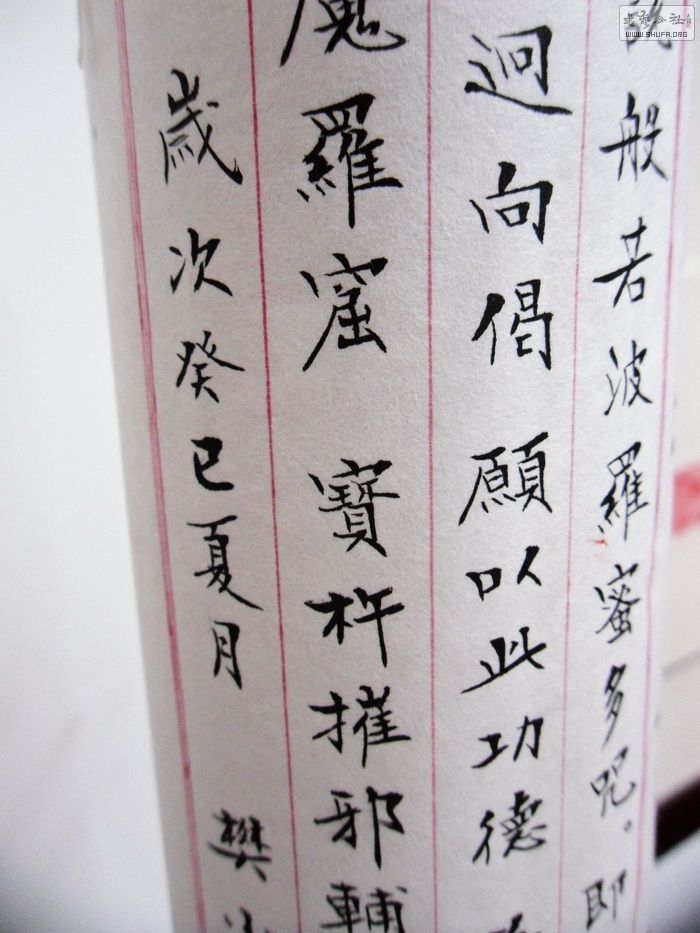 般若波羅蜜多咒。即
迥向偈 願以此功德
魔羅窟 寶杵摧邪輔
歲次癸巳夏月 樊
書藝公社
WWW.SHUFA.ORG